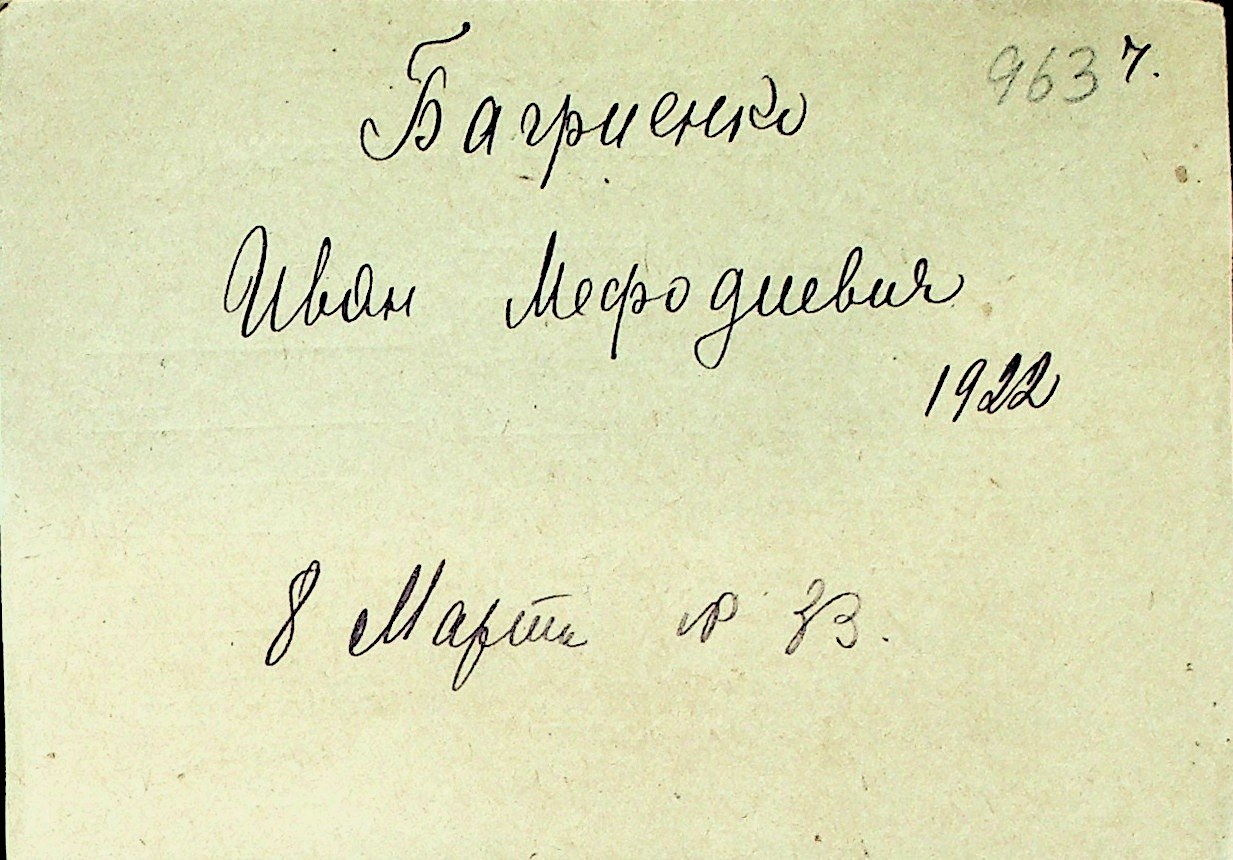 963 7.
Багриенко
Иван Мефодиевич
1922
8 Марта №